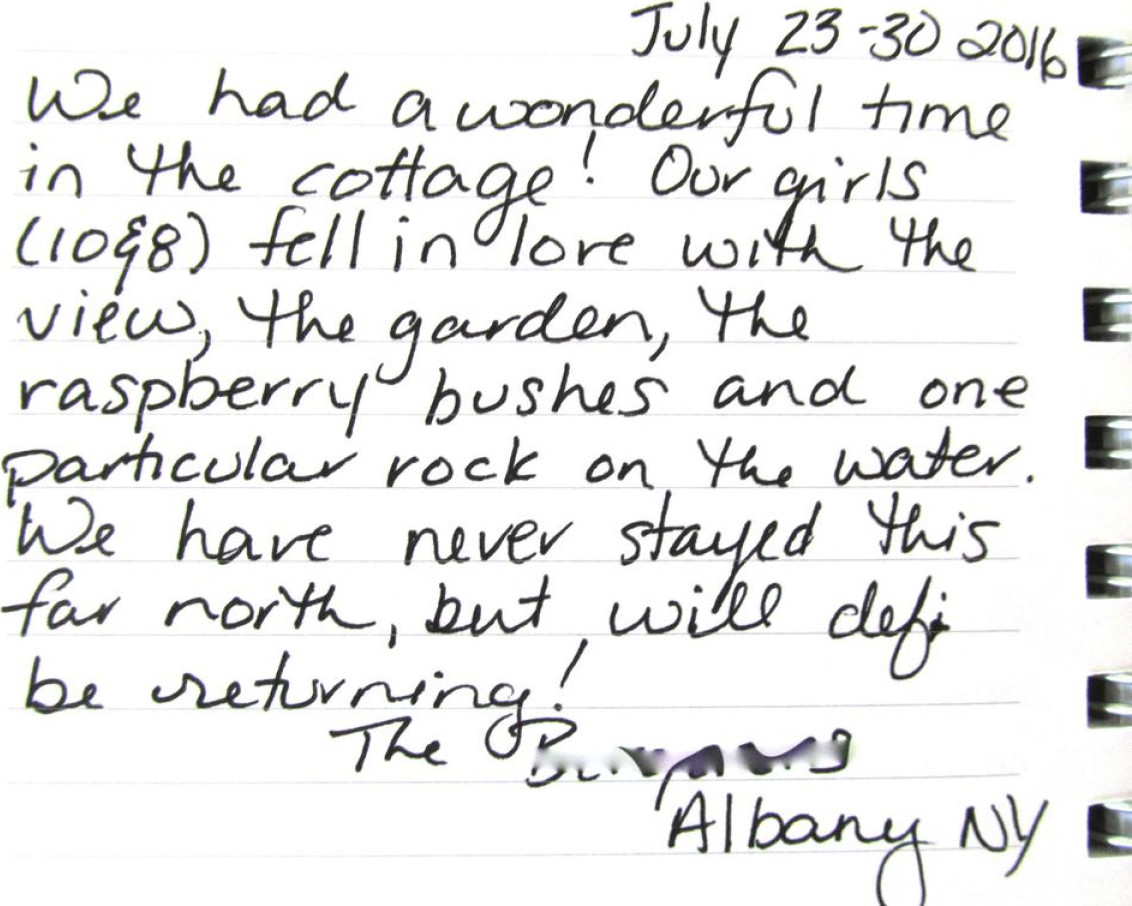 July 23-30 2016
We had a wonderful time
in the cottage! Our girls
(10&8) fell in love with the
view, the garden, the
raspberry bushes and one
particular rock on the water.
We have never stayed this
far north, but will defi
be returning!
The
Albany NY